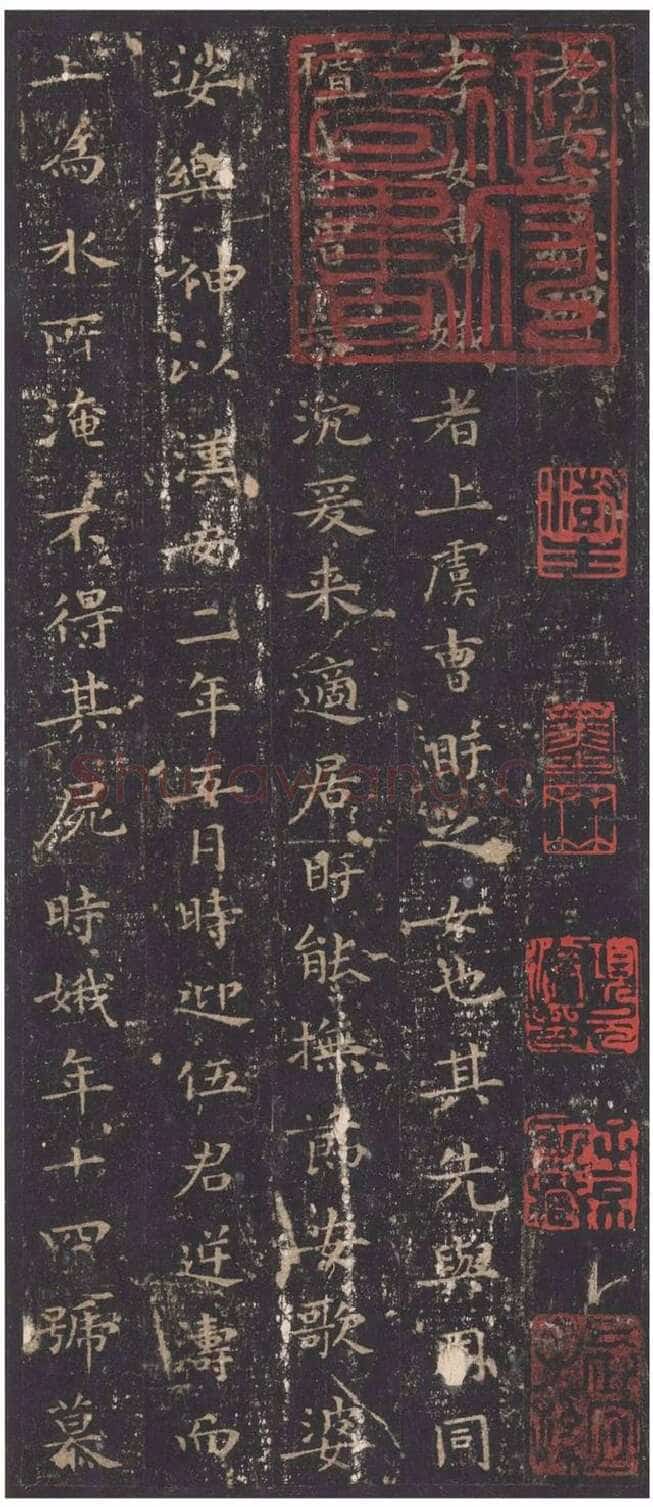 孝女曹娥碑
孝女曹娥者上虞曹盱之女也其先與周同
沈爰来適居盱能撫節安歌婆
娑樂神以漢安二年五日時迎伍君逆濤而
上為水所淹不得其屍時娥年十四號慕
shufawang.c